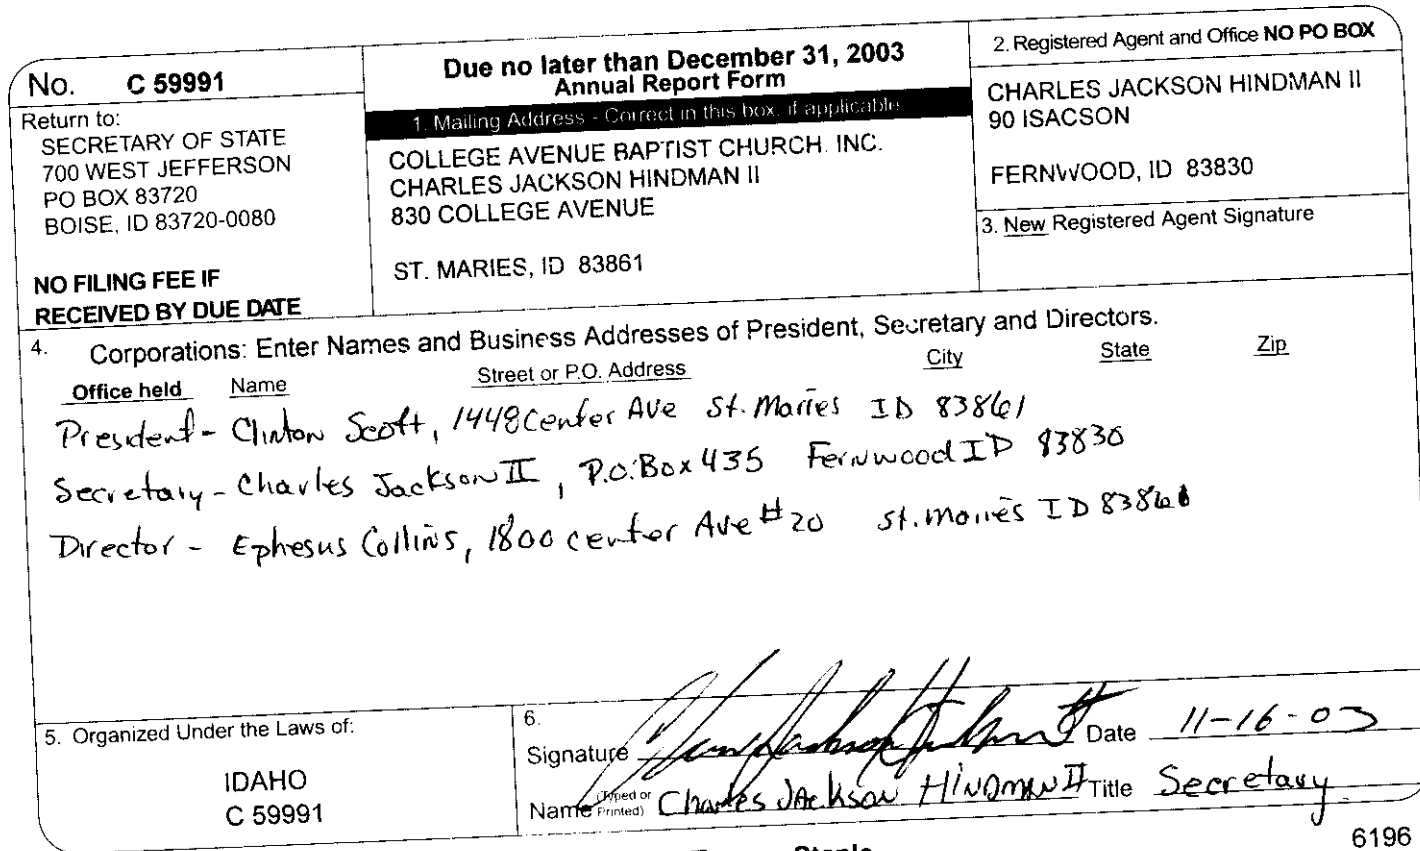 No. C 59991
Return to:
SECRETARY OF STATE
700 WEST JEFFERSON
PO BOX 83720
BOISE, ID 83720-0080
NO FILING FEE IF
RECEIVED BY DUE DATE
Due no later than December 31, 2003
Annual Report Form
1. Mailing Address - Correct in this box, if applicable
COLLEGE AVENUE BAPTIST CHURCH, INC.
CHARLES JACKSON HINDMAN II
830 COLLEGE AVENUE
ST. MARIES, ID 83861
2. Registered Agent and Office NO PO BOX
CHARLES JACKSON HINDMAN II
90 ISACSON
FERNWOOD, ID 83830
3. New Registered Agent Signature
4. Corporations: Enter Names and Business Addresses of President, Secretary and Directors.
Office held Name Street or P.O. Address City State Zip
President - Clinton Scott, 1448 Center Ave St. Maries ID 83861
Secretary - Charles Jackson II, P.O. Box 435 Fernwood ID 83830
Director - Ephesus Collins, 1800 center Ave #20 St. Maries ID 83861
5. Organized Under the Laws of:
IDAHO
C 59991
6.
Signature Charles Jackson Hindman II Date 11-16-03
Name (Typed or Printed) Charles JAckson HINDMAN II Title Secretary
6196